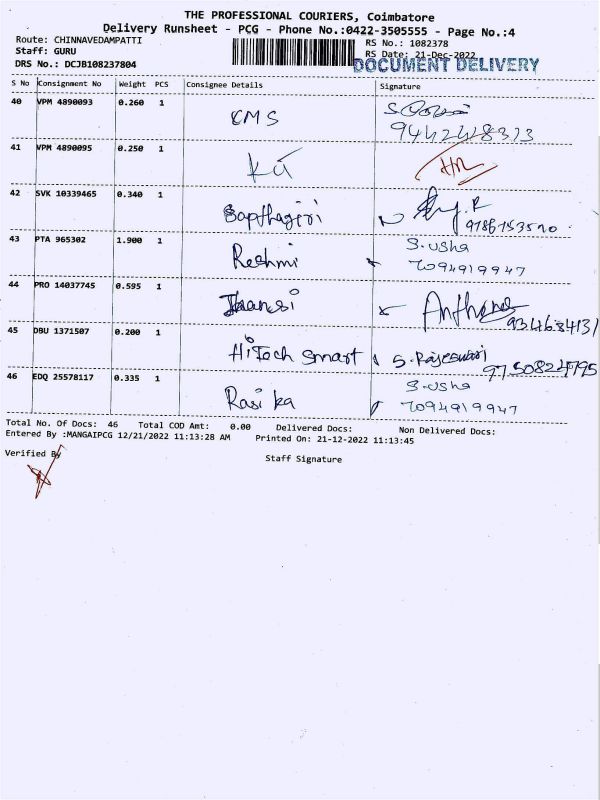 THE PROFESSIONAL COURIERS, Coimbatore
Delivery Runsheet - PCG - Phone No.:0422-3505555 - Page No.:4
Route: CHINNAVEDAMPATTI
RS No.: 1082378
Staff: GURU
RS Date: 21-Dec-2022
DRS No.: DCJB108237804
DOCUMENT DELIVERY
S No Consignment No Weight PCS Consignee Details Signature
40 VPM 4890093 0.260 1 CMS
9442428373
41 VPM 4890095 0.250 1
42 SVK 10339465 0.340 1 Sapthagiri
43 PTA 965302 1.900 1 Reshmi S. usha
7094919947
44 PRO 14037745 0.595 1 Jhansi
9344634131
45 DBU 1371507 0.200 1 HiTech Smart S. Rajeswari
9750822795
46 EDQ 25578117 0.335 1 Rasika S. usha
7094919947
Total No. Of Docs: 46 Total COD Amt: 0.00 Delivered Docs: Non Delivered Docs:
Entered By :MANGAIPCG 12/21/2022 11:13:28 AM Printed On: 21-12-2022 11:13:45
Verified By
Staff Signature